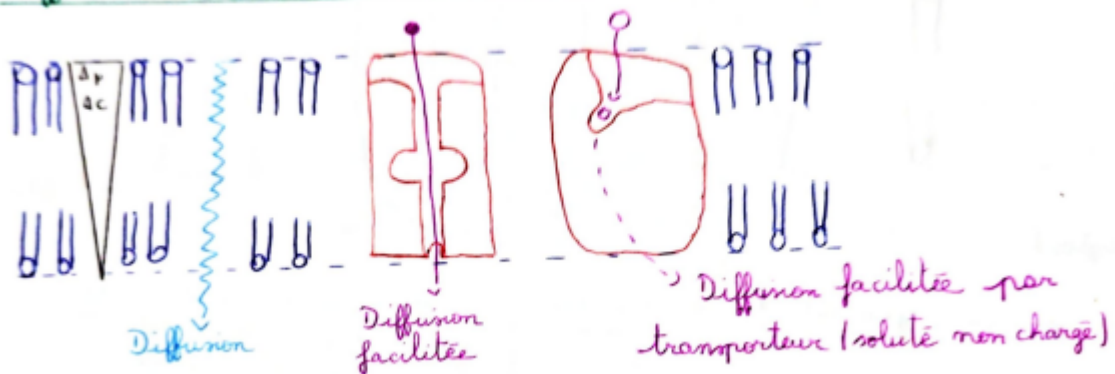 Δp
Δc
Diffusion
Diffusion
facilitée
Diffusion facilitée par
transporteur (soluté non chargé)